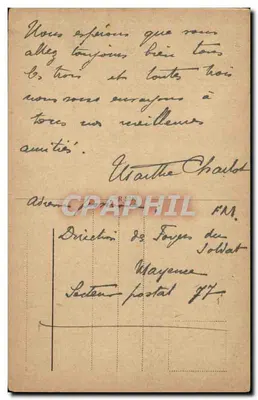 Nous espérons que vous
allez toujours bien tous
les trois et toutes trois
nous vous envoyons à
tous nos meilleures
amitiés.
Marthe Charlot
CAPHIL
Direction des Foyers du
Soldat
Mayence
Secteur postal 77